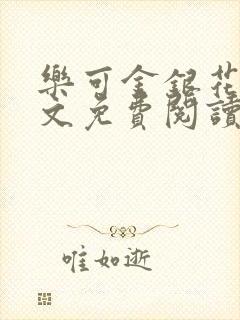 樂可金銀花
文免費閱讀
唯如逝